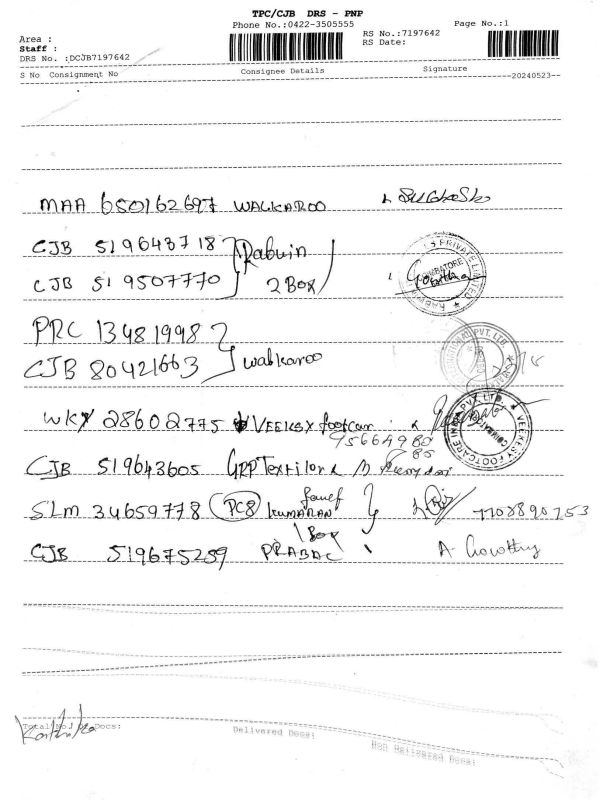 TPC/CJB DRS - PNP
Phone No.:0422-3505555
Page No.:1
Area :
RS No.:7197642
Staff :
RS Date:
DRS No. :DCJB7197642
S No Consignment No Consignee Details Signature
20240523
MAA 650162697 WALKAROO
CJB 519643718 Rabwin
CJB 519507770 2 Box
PRC 13481998
CJB 80421663 walkaroo
WKY 28602775 VEEKESY footcare
CJB 519643605 GRP Textiles
SLM 34659778 PC8 KUMARAN
1 Box
CJB 519675259 PRABAC A. Chowthry
Total No. Of Docs:
Delivered Docs:
Non Delivered Docs:
Karthika